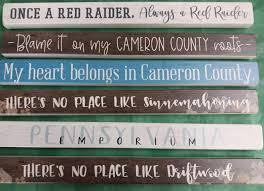 ONCE A RED RAIDER. Always a Red Raider
-Blame it on my CAMERON COUNTY roots-
My heart belongs in Cameron County.
THERE'S NO PLACE LIKE Sinnemahoning
PENNSYLVANIA
EMPORIUM
THERE'S NO PLACE LIKE Driftwood